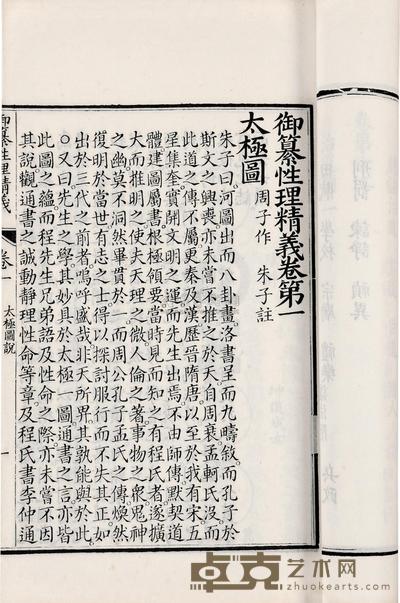 御纂性理精義卷第一
太極圖 周子作 朱子註
朱子曰河圖出而八卦畫洛書呈而九疇敘而孔子於
斯文之興喪亦未嘗不推之於天自周衰孟軻氏沒而
此道之傳不屬更秦及漢歷晉隋唐以至於我有宋五
星集奎實開文明之運而先生出焉不由師傳默契道
體建圖屬書根極領要當時見而知之有程氏者遂擴
大而推明之使夫天理之微人倫之著事物之眾鬼神
之幽莫不洞然畢貫於一而周公孔子孟氏之傳煥然
復明於當世有志之士得以探討服行而不失其正如
出於三代之前者嗚呼盛哉非天所畀其孰能與於此
○又曰先生之學其妙具於太極一圖通書之言亦皆
此圖之蘊而程先生兄弟語及性命之際亦未嘗不因
其說觀通書之誠動靜理性命等章及程氏書李仲通
御纂性理精義 卷一 太極圖說 一
卓克艺术网
zhuokearts.com